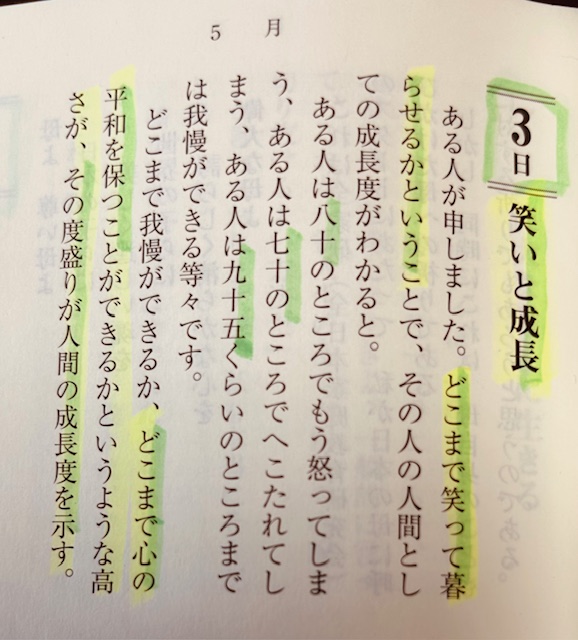 5 月
3日 笑いと成長
ある人が申しました。どこまで笑って暮
らせるかということで、その人の人間とし
ての成長度がわかると。
ある人は八十のところでもう怒ってしま
う、ある人は七十のところでへこたれてし
まう、ある人は九十五くらいのところまで
は我慢ができる等々です。
どこまで我慢ができるか、どこまで心の
平和を保つことができるかというような高
さが、その度盛りが人間の成長度を示す。